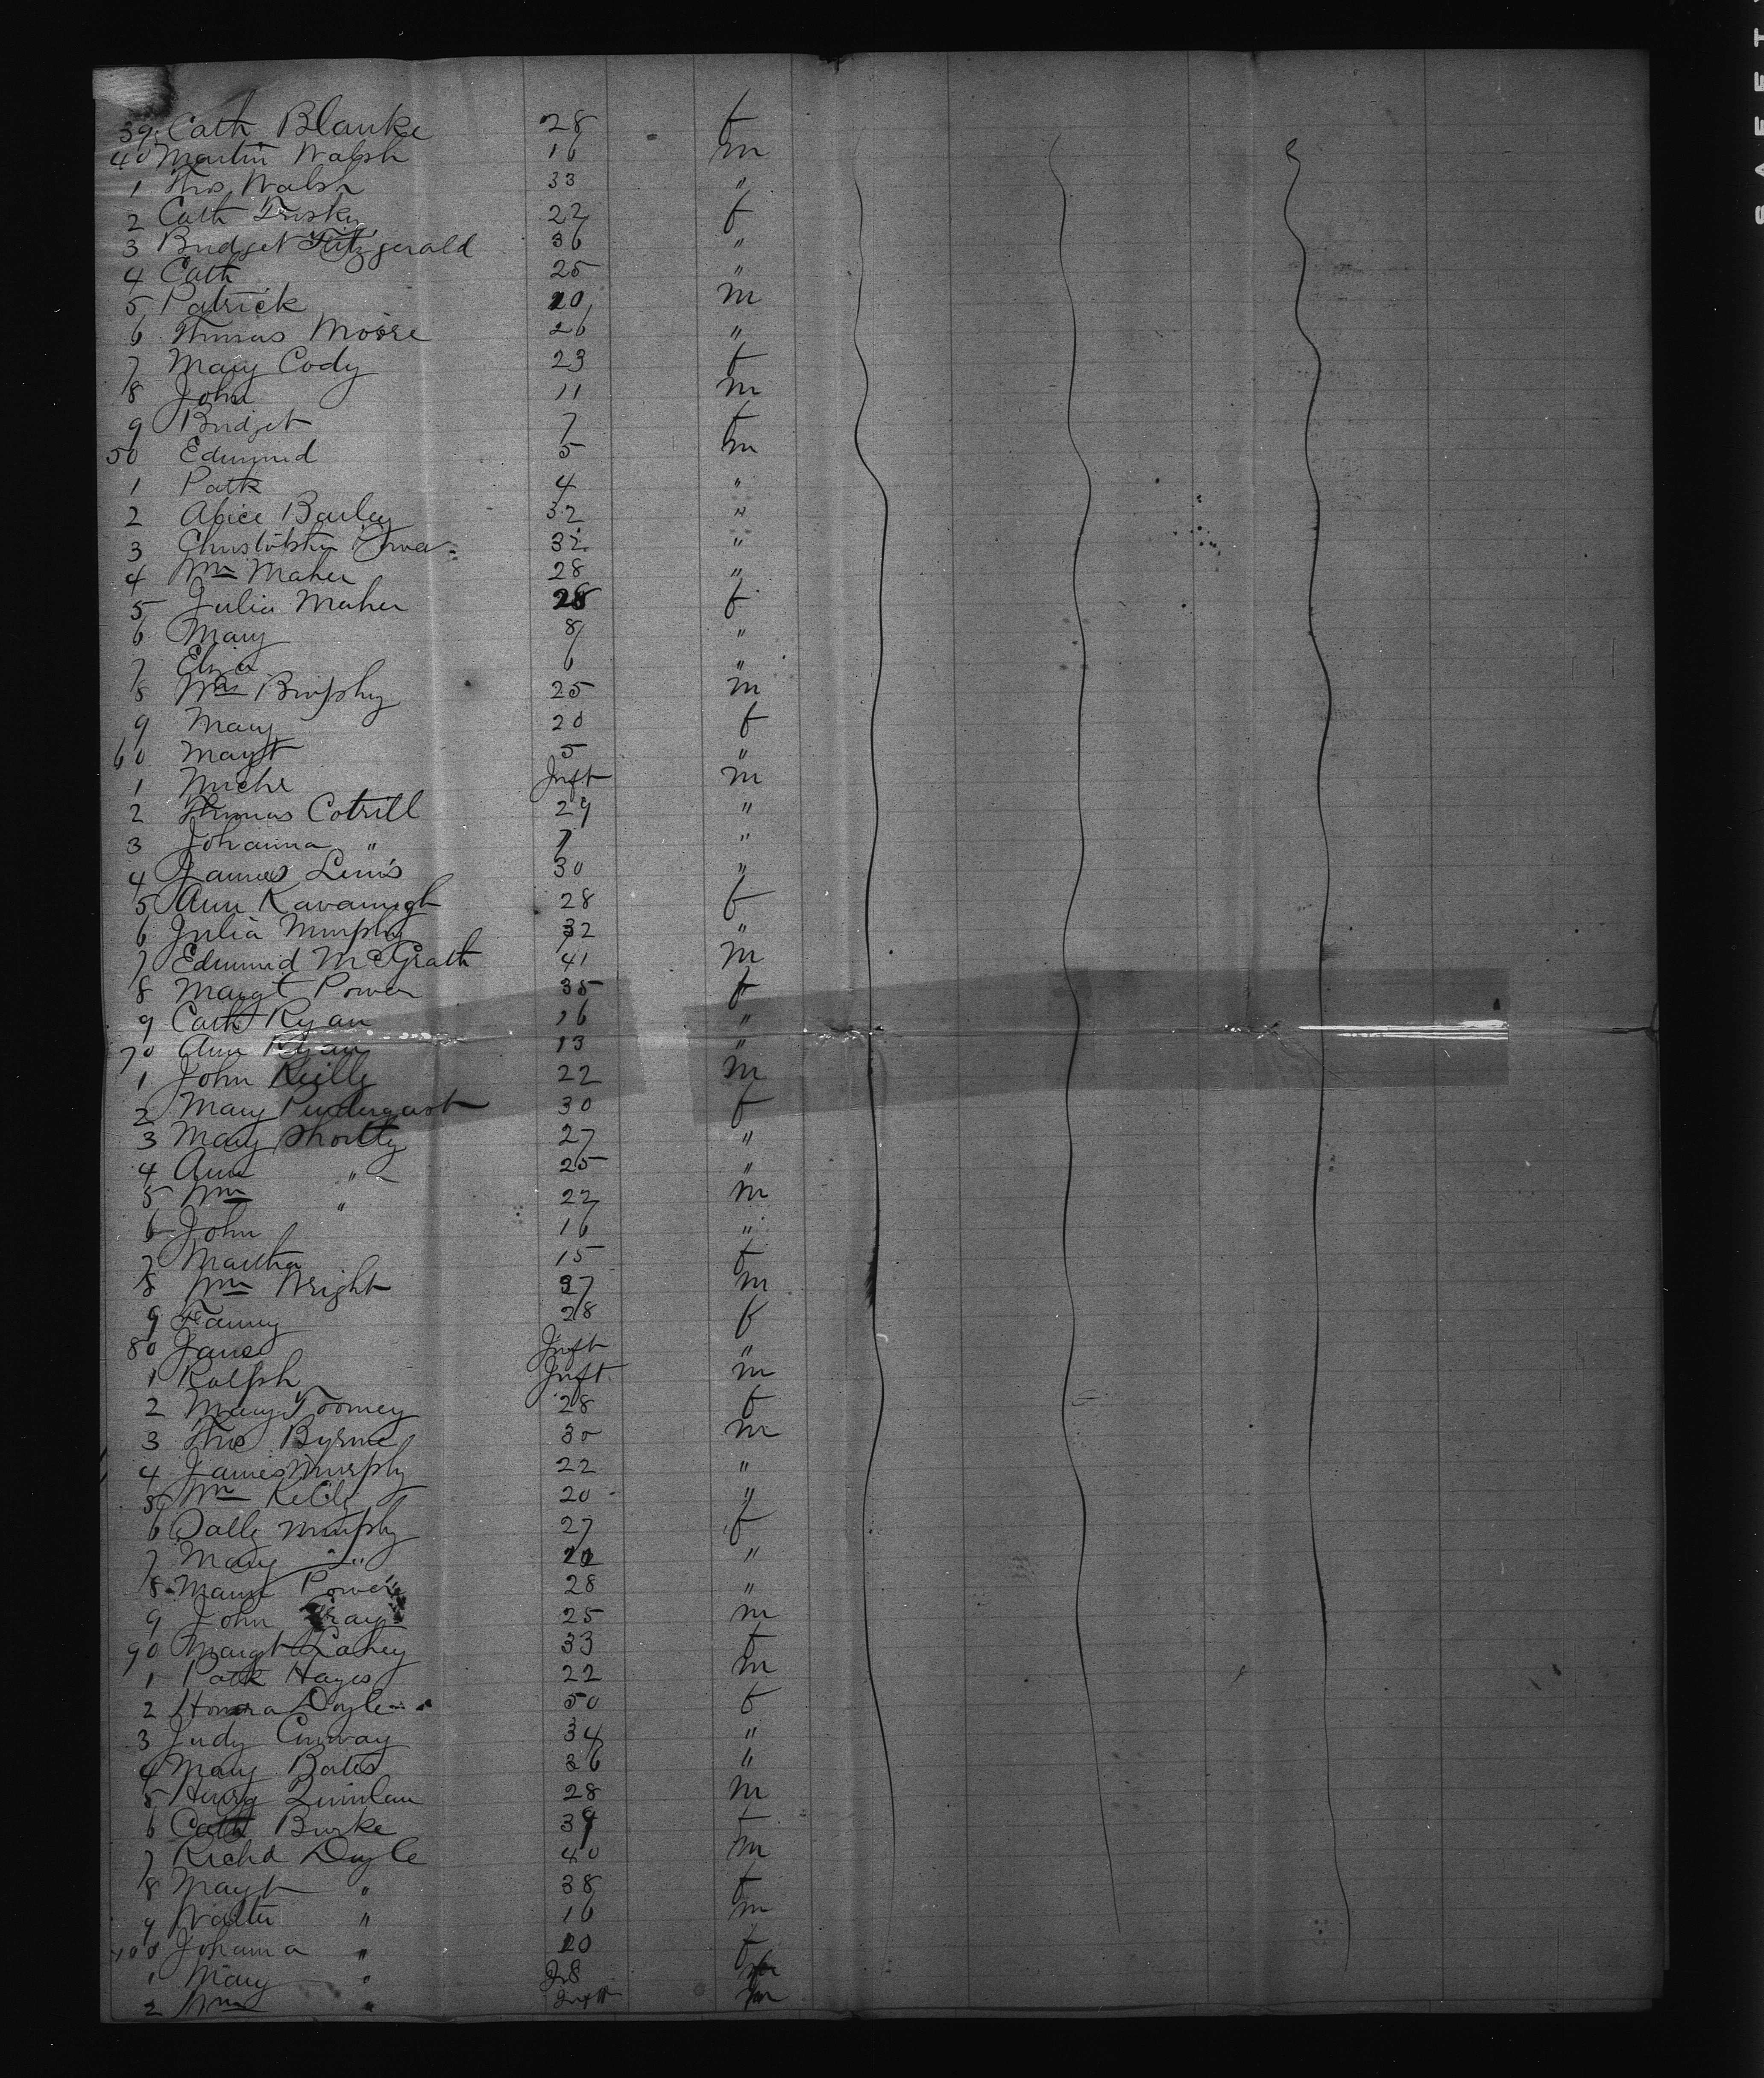 39 Cath Blanke 28 f
40 Martin Walsh 16 m
1 Thos Walsh 33 "
2 Cath 22 f
3 Bridget Fitzgerald 36 "
4 Cath 25 "
5 Patrick 20 m
6 Thomas Moore 26 "
7 Mary Cody 23 f
8 John 11 m
9 Bridget 7 f
50 Edmund 5 m
1 Patk 4 "
2 Alice Barley 32 "
3 Christopher 32 "
4 Wm Maher 28 "
5 Julia Maher 28 f
6 Mary 8 "
7 Eliza 6 "
8 Wm 25 m
9 Mary 20 f
60 Margt 5 "
1 Michl Inft m
2 Thomas Cotrill 29 "
3 Johanna " 7 "
4 James 30 "
5 Ann Kavanagh 28 f
6 Julia Murphy 32 "
7 Edmund McGrath 41 m
8 Margt Power 35 f
9 Cath Ryan 16 "
70 Ann Ryan 13 "
1 John Reilly 22 m
2 Mary Pendergast 30 f
3 Mary Shortly 27 "
4 Ann " 25 "
5 Wm " 22 m
6 John 16 "
7 Martha 15 f
8 Wm Wright 37 m
9 Fanny 28 f
80 Jane Inft "
1 Ralph Inft m
2 Mary Toomey 28 f
3 Thos Byrne 30 m
4 James Murphy 22 "
5 Wm Kelly 20 "
6 Sally Murphy 27 f
7 Mary " "
8 Power 28 "
9 John Gray 25 m
90 Margt Lahey 33 f
1 Patk Hayes 22 m
2 Honora Doyle 50 f
3 Judy Conway 34 "
4 Mary Bates 36 "
5 Henry Quinlan 28 m
6 Cath Burke 39 f
7 Richd Doyle 40 m
8 Margt " 38 f
9 Walter " 16 m
400 Johanna " 20 f
1 Mary "
2 Wm " Inft m
SAFETY